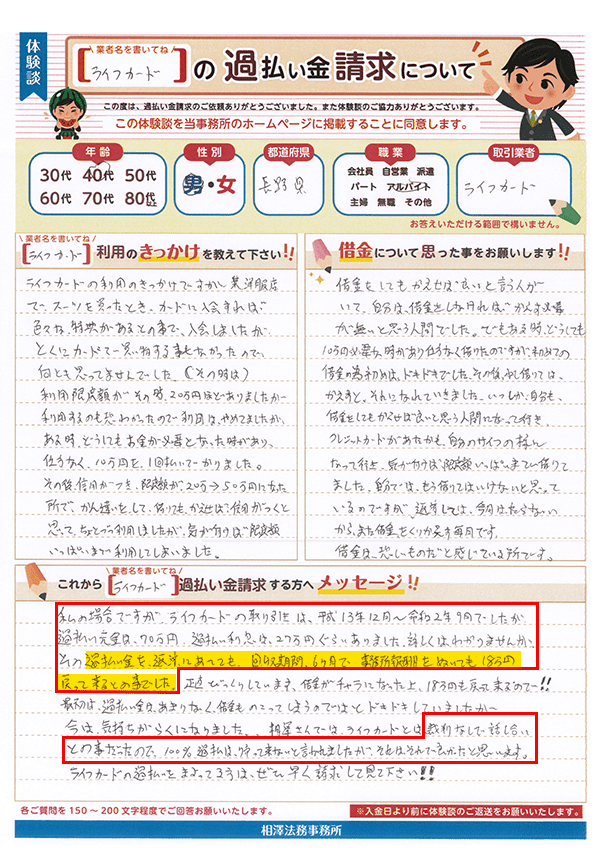 体験談
業者名を書いてね
[ライフカード]の過払い金請求について
この度は、過払い金請求のご依頼ありがとうございました。また体験談のご協力ありがとうございます。
この体験談を当事務所のホームページに掲載することに同意します。
年齢
30代 40代 50代
60代 70代 80代以上
性別
男・女
都道府県
長野県
職業
会社員 自営業 派遣
パート アルバイト
主婦 無職 その他
取引業者
ライフカード
お答えいただける範囲で構いません。
業者名を書いてね
[ライフカード]利用のきっかけを教えて下さい!!
ライフカードの利用のきっかけですが、某洋服店
で、スーツを買ったとき、カードに入会すれば
色々な特典があるとの事で、入会しましたが、
とくにカードで買い物する事もなかったので、
何とも思ってませんでした。(その時は)
利用限度額がその時、20万円ほどありましたが
利用するのも恐わかったので利用は、やめてましたが、
ある時、どうしてもお金が必要となった時があり、
仕方なく、10万円を、1回払いでかりました。
その後、信用がつき、限度額が、20万→50万円になった
所で、かん違いをして、借りても、返せば、信用がつくと
思って、ちょこちょこ利用しましたが、気が付けば限度額
いっぱいまで利用してしまいました。
借金について思った事をお願いします!!
借金をしてもかえせば良いと言う人が
いて、自分は、借金をしなければ、かえす必要
が無いと思う人間でした。でもある時、どうしても
10万円必要な時があり仕方なく借りたのですが、初めての
借金の為、初めは、ドキドキでした。その後、少し借りては、
かえすと、それになれていきました。いつしか、自分も、
借金をしてもかえせば良いと思う人間になって行き、
クレジットカードがあたかも、自分のサイフの様に
なって行き、気が付けば限度額いっぱいまで借りて
ました。自分では、もう借りてはいけないと思って
いるのですが、返済しては、今月はたらない
から、また借金をくりかえす毎月です。
借金は、恐しいものだと感じている所です。
業者名を書いてね
これから[ライフカード]過払い金請求する方へメッセージ!!
私の場合ですが、ライフカードの取り引きは、平成13年12月〜令和2年9月でしたが、
過払い元金は、70万円、過払い利息は、27万円ぐらいありました。詳しくはわかりませんが、
その過払い金を、返済にあてても、回収期間、6ヶ月で、事務所報酬をぬいても18万円
戻って来るとの事でした。正直びっくりしています、借金がチャラになった上、18万も戻って来るので〜!!
最初は、過払い金は、あまりなく、借金ものこってしまうのではとドキドキしていましたが〜
今は、気持ちがらくになりました。相澤さんでは、ライフカードとは裁判なしで話し合い
との事だったので、100%過払いは、戻って来ないと言われましたが、それはそれで良かったと思います。
ライフカードの過払いをまよってる方は、ぜひ早く請求して見て下さい!!
各ご質問を150〜200文字程度でご回答お願いいたします。
※入金日より前に体験談のご返送をお願いいたします。
相澤法務事務所